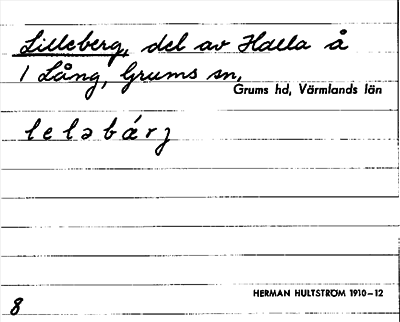 Lilleberg, del av Halla å
i Lång, Grums sn,
Grums hd, Värmlands län
leləbǽrj
HERMAN HULTSTRÖM 1910–12
8